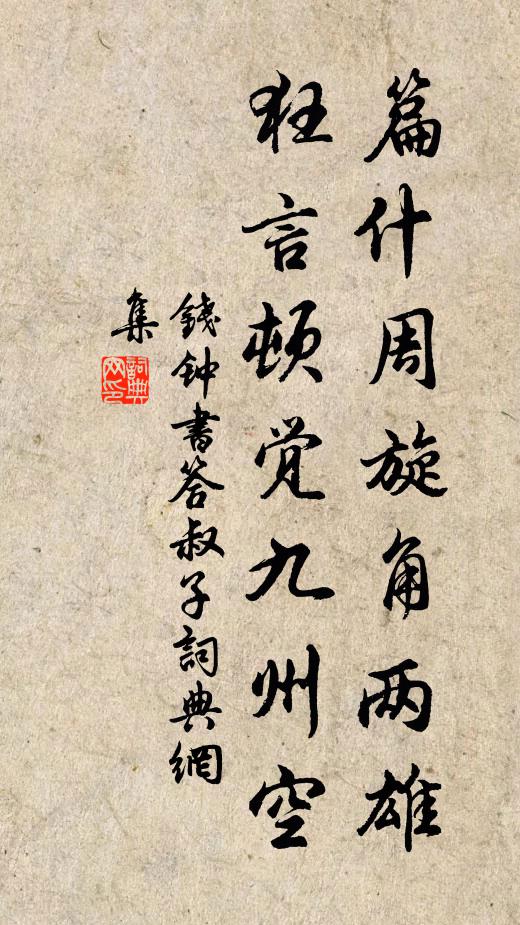 篇什周旋角两雄
狂言顿觉九州空
錢钟書答叔子詞典網
集
詞典
网印